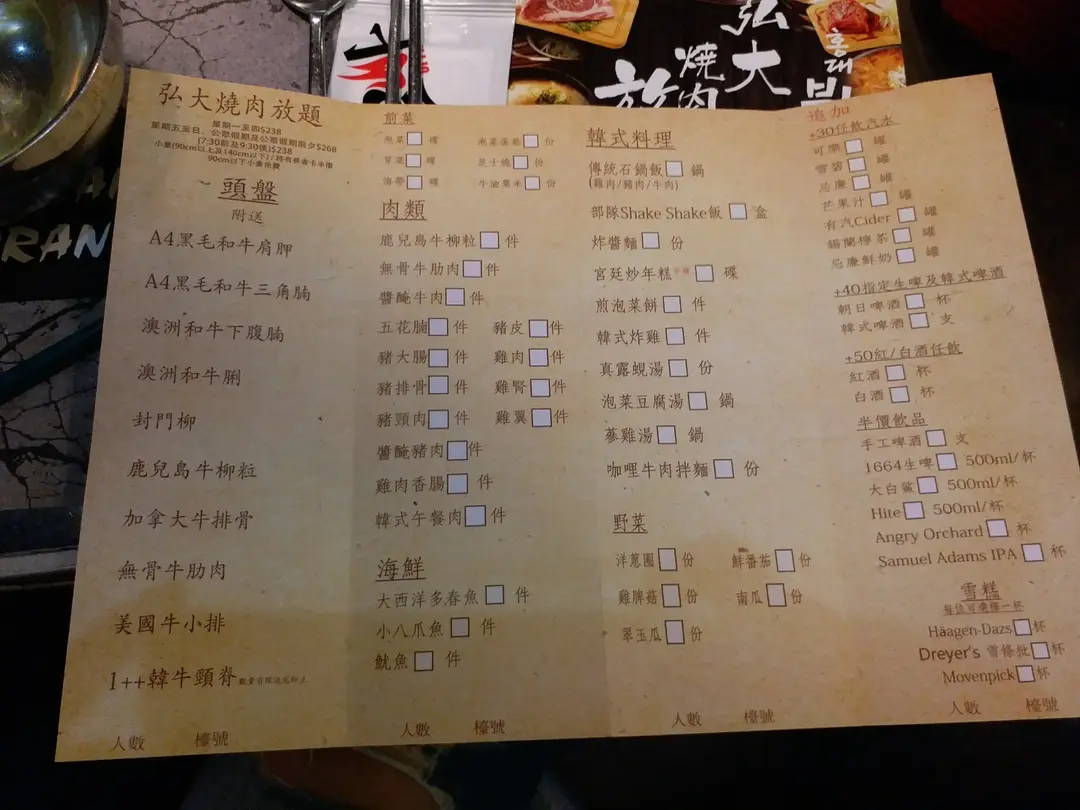 弘大燒肉放題
星期一至四$238
星期五至日、公眾假期及公眾假期前夕$268
(7:30前及9:30後)$238
90cm以下小童免費
頭盤
附送
A4黑毛和牛肩胛
A4黑毛和牛三角腩
澳洲和牛下腹腩
澳洲和牛脷
封門柳
鹿兒島牛柳粒
加拿大牛排骨
無骨牛肋肉
美國牛小排
1++韓牛頸脊 數量有限送完即止
人數 檯號
前菜
泡菜 碟
芽菜 碟
海帶 碟
泡菜蛋卷 份
芝士燒 份
牛油粟米 份
肉類
鹿兒島牛柳粒 件
無骨牛肋肉 件
醬醃牛肉 件
五花腩 件 豬皮 件
豬大腸 件 雞肉 件
豬排骨 件 雞腎 件
豬頸肉 件 雞翼 件
醬醃豬肉 件
雞肉香腸 件
韓式午餐肉 件
海鮮
大西洋多春魚 件
小八爪魚 件
魷魚 件
人數 檯號
韓式料理
傳統石鍋飯 鍋
(雞肉/豬肉/牛肉)
部隊Shake Shake飯 盒
炸醬麵 份
宮廷炒年糕 碟
煎泡菜餅 件
韓式炸雞 件
真露蜆湯 份
泡菜豆腐湯 鍋
蔘雞湯 鍋
咖哩牛肉拌麵 份
野菜
洋蔥圈 份 鮮番茄 份
雞脾菇 份 南瓜 份
翠玉瓜 份
人數 檯號
追加
+30任飲汽水
可樂 罐
雪碧 罐
忌廉 罐
芒果汁 罐
有汽Cider 罐
錫蘭檸茶 罐
忌廉鮮奶 罐
+40指定生啤及韓式啤酒
朝日啤酒 杯
韓式啤酒 支
+50紅/白酒任飲
紅酒 杯
白酒 杯
半價飲品
手工啤酒 支
1664生啤 500ml/杯
大白鯊 500ml/杯
Hite 500ml/杯
Angry Orchard 杯
Samuel Adams IPA 杯
雪糕
每位可選擇一杯
Häagen-Dazs 杯
Dreyer's 雪條批 杯
Movenpick 杯
人數 檯號
弘大
燒肉
放
홍대
RAN